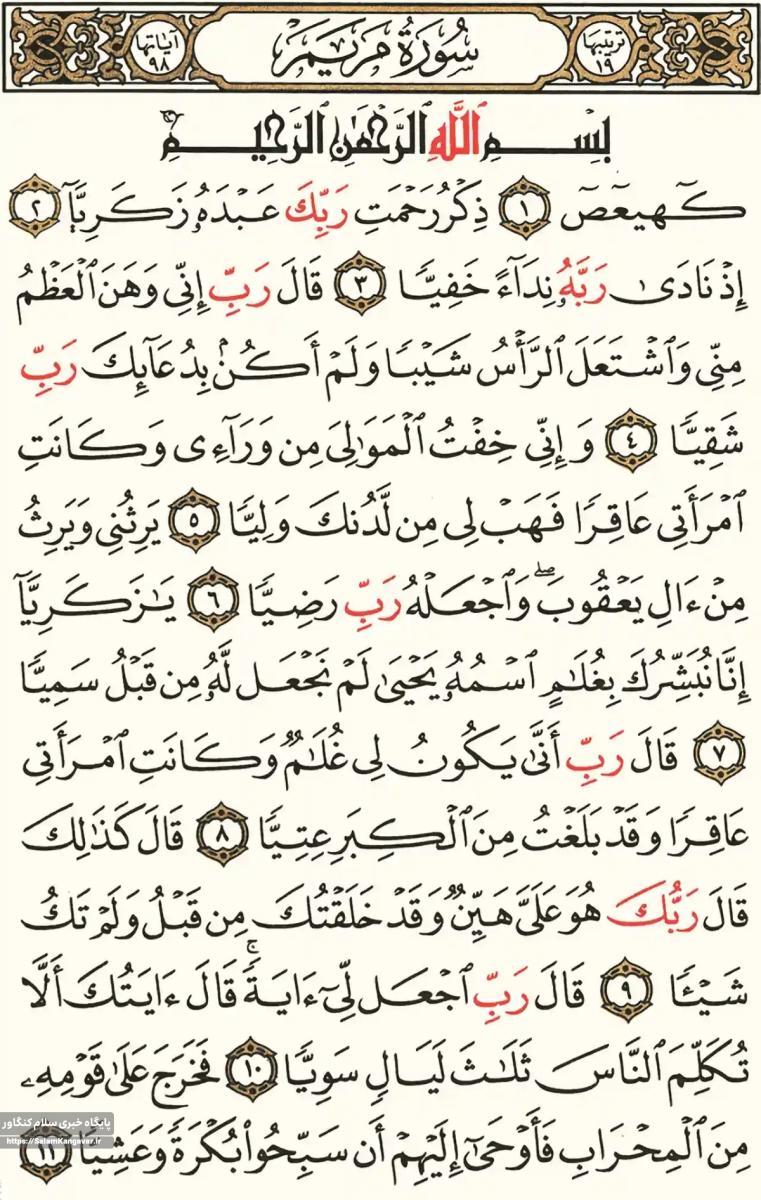 ترتيبها ١٩
سُورَةُ مَرْيَمَ
آياتها ٩٨
بِسْمِ ٱللَّهِ ٱلرَّحْمَٰنِ ٱلرَّحِيمِ
كٓهيعٓصٓ ١ ذِكْرُ رَحْمَتِ رَبِّكَ عَبْدَهُۥ زَكَرِيَّآ ٢
إِذْ نَادَىٰ رَبَّهُۥ نِدَآءً خَفِيًّا ٣ قَالَ رَبِّ إِنِّى وَهَنَ ٱلْعَظْمُ
مِنِّى وَٱشْتَعَلَ ٱلرَّأْسُ شَيْبًا وَلَمْ أَكُنۢ بِدُعَآئِكَ رَبِّ
شَقِيًّا ٤ وَإِنِّى خِفْتُ ٱلْمَوَٰلِىَ مِن وَرَآءِى وَكَانَتِ
ٱمْرَأَتِى عَاقِرًا فَهَبْ لِى مِن لَّدُنكَ وَلِيًّا ٥ يَرِثُنِى وَيَرِثُ
مِنْ ءَالِ يَعْقُوبَ ۖ وَٱجْعَلْهُ رَبِّ رَضِيًّا ٦ يَٰزَكَرِيَّآ
إِنَّا نُبَشِّرُكَ بِغُلَٰمٍ ٱسْمُهُۥ يَحْيَىٰ لَمْ نَجْعَل لَّهُۥ مِن قَبْلُ سَمِيًّا
٧ قَالَ رَبِّ أَنَّىٰ يَكُونُ لِى غُلَٰمٌ وَكَانَتِ ٱمْرَأَتِى
عَاقِرًا وَقَدْ بَلَغْتُ مِنَ ٱلْكِبَرِ عِتِيًّا ٨ قَالَ كَذَٰلِكَ
قَالَ رَبُّكَ هُوَ عَلَىَّ هَيِّنٌ وَقَدْ خَلَقْتُكَ مِن قَبْلُ وَلَمْ تَكُ
شَيْـًٔا ٩ قَالَ رَبِّ ٱجْعَل لِّىٓ ءَايَةً ۚ قَالَ ءَايَتُكَ أَلَّا
تُكَلِّمَ ٱلنَّاسَ ثَلَٰثَ لَيَالٍ سَوِيًّا ١٠ فَخَرَجَ عَلَىٰ قَوْمِهِۦ
مِنَ ٱلْمِحْرَابِ فَأَوْحَىٰٓ إِلَيْهِمْ أَن سَبِّحُوا۟ بُكْرَةً وَعَشِيًّا ١١
پایگاه خبری سلام کنگاور
https://SalamKangavar.ir